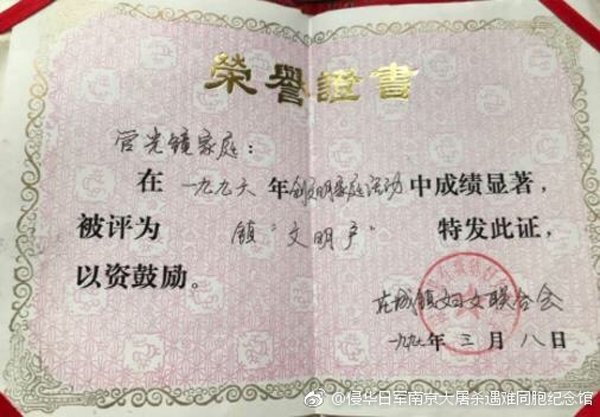 榮譽證書
官光镜家庭：
在一九九六年创文明家庭活动中成绩显著，
被评为 镇“文明户” 特发此证，
以资鼓励。
花城镇妇女联合会
一九九七年三月八日
@侵华日军南京大屠杀遇难同胞纪念馆